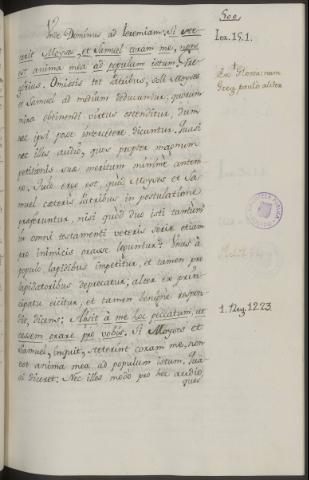 500.
Unde Dominus ad Ieremiam: Si stete-
rint Moyses, et Samuel coram me, non
est anima mea ad populum istum.
Omissis tot Patribus, soli Moyses
et Samuel ad medium deducuntur, quorum
mira obtinendi virtus ostenditur, dum
nec ipsi posse intercedere dicuntur. Quasi
nec illos audio, quos propter magnum
petitionis suæ meritum minime contem-
no. Quid ergo est, quod Moyses et Sa-
muel cæteris Patribus in postulatione
præferuntur, nisi quod duo isti tantum
in omni testamenti veteris serie etiam
pro inimicis orasse leguntur? Unus a
populo lapidibus impetitur, et tamen pro
lapidatoribus deprecatur; alter ex prin-
cipatu eicitur, et tamen benigne respon-
det, dicens: Absit a me hoc peccatum, ut
cessem orare pro vobis. Si Moyses et
Samuel, inquit, steterint coram me, non
est anima mea ad populum istum. Qua-
si diceret: Nec illos modo pro hoc audio,
quos
Ier. 15. 1.
Ex Glossa: nam
Greg. paulo aliter
1. Reg. 12. 23.